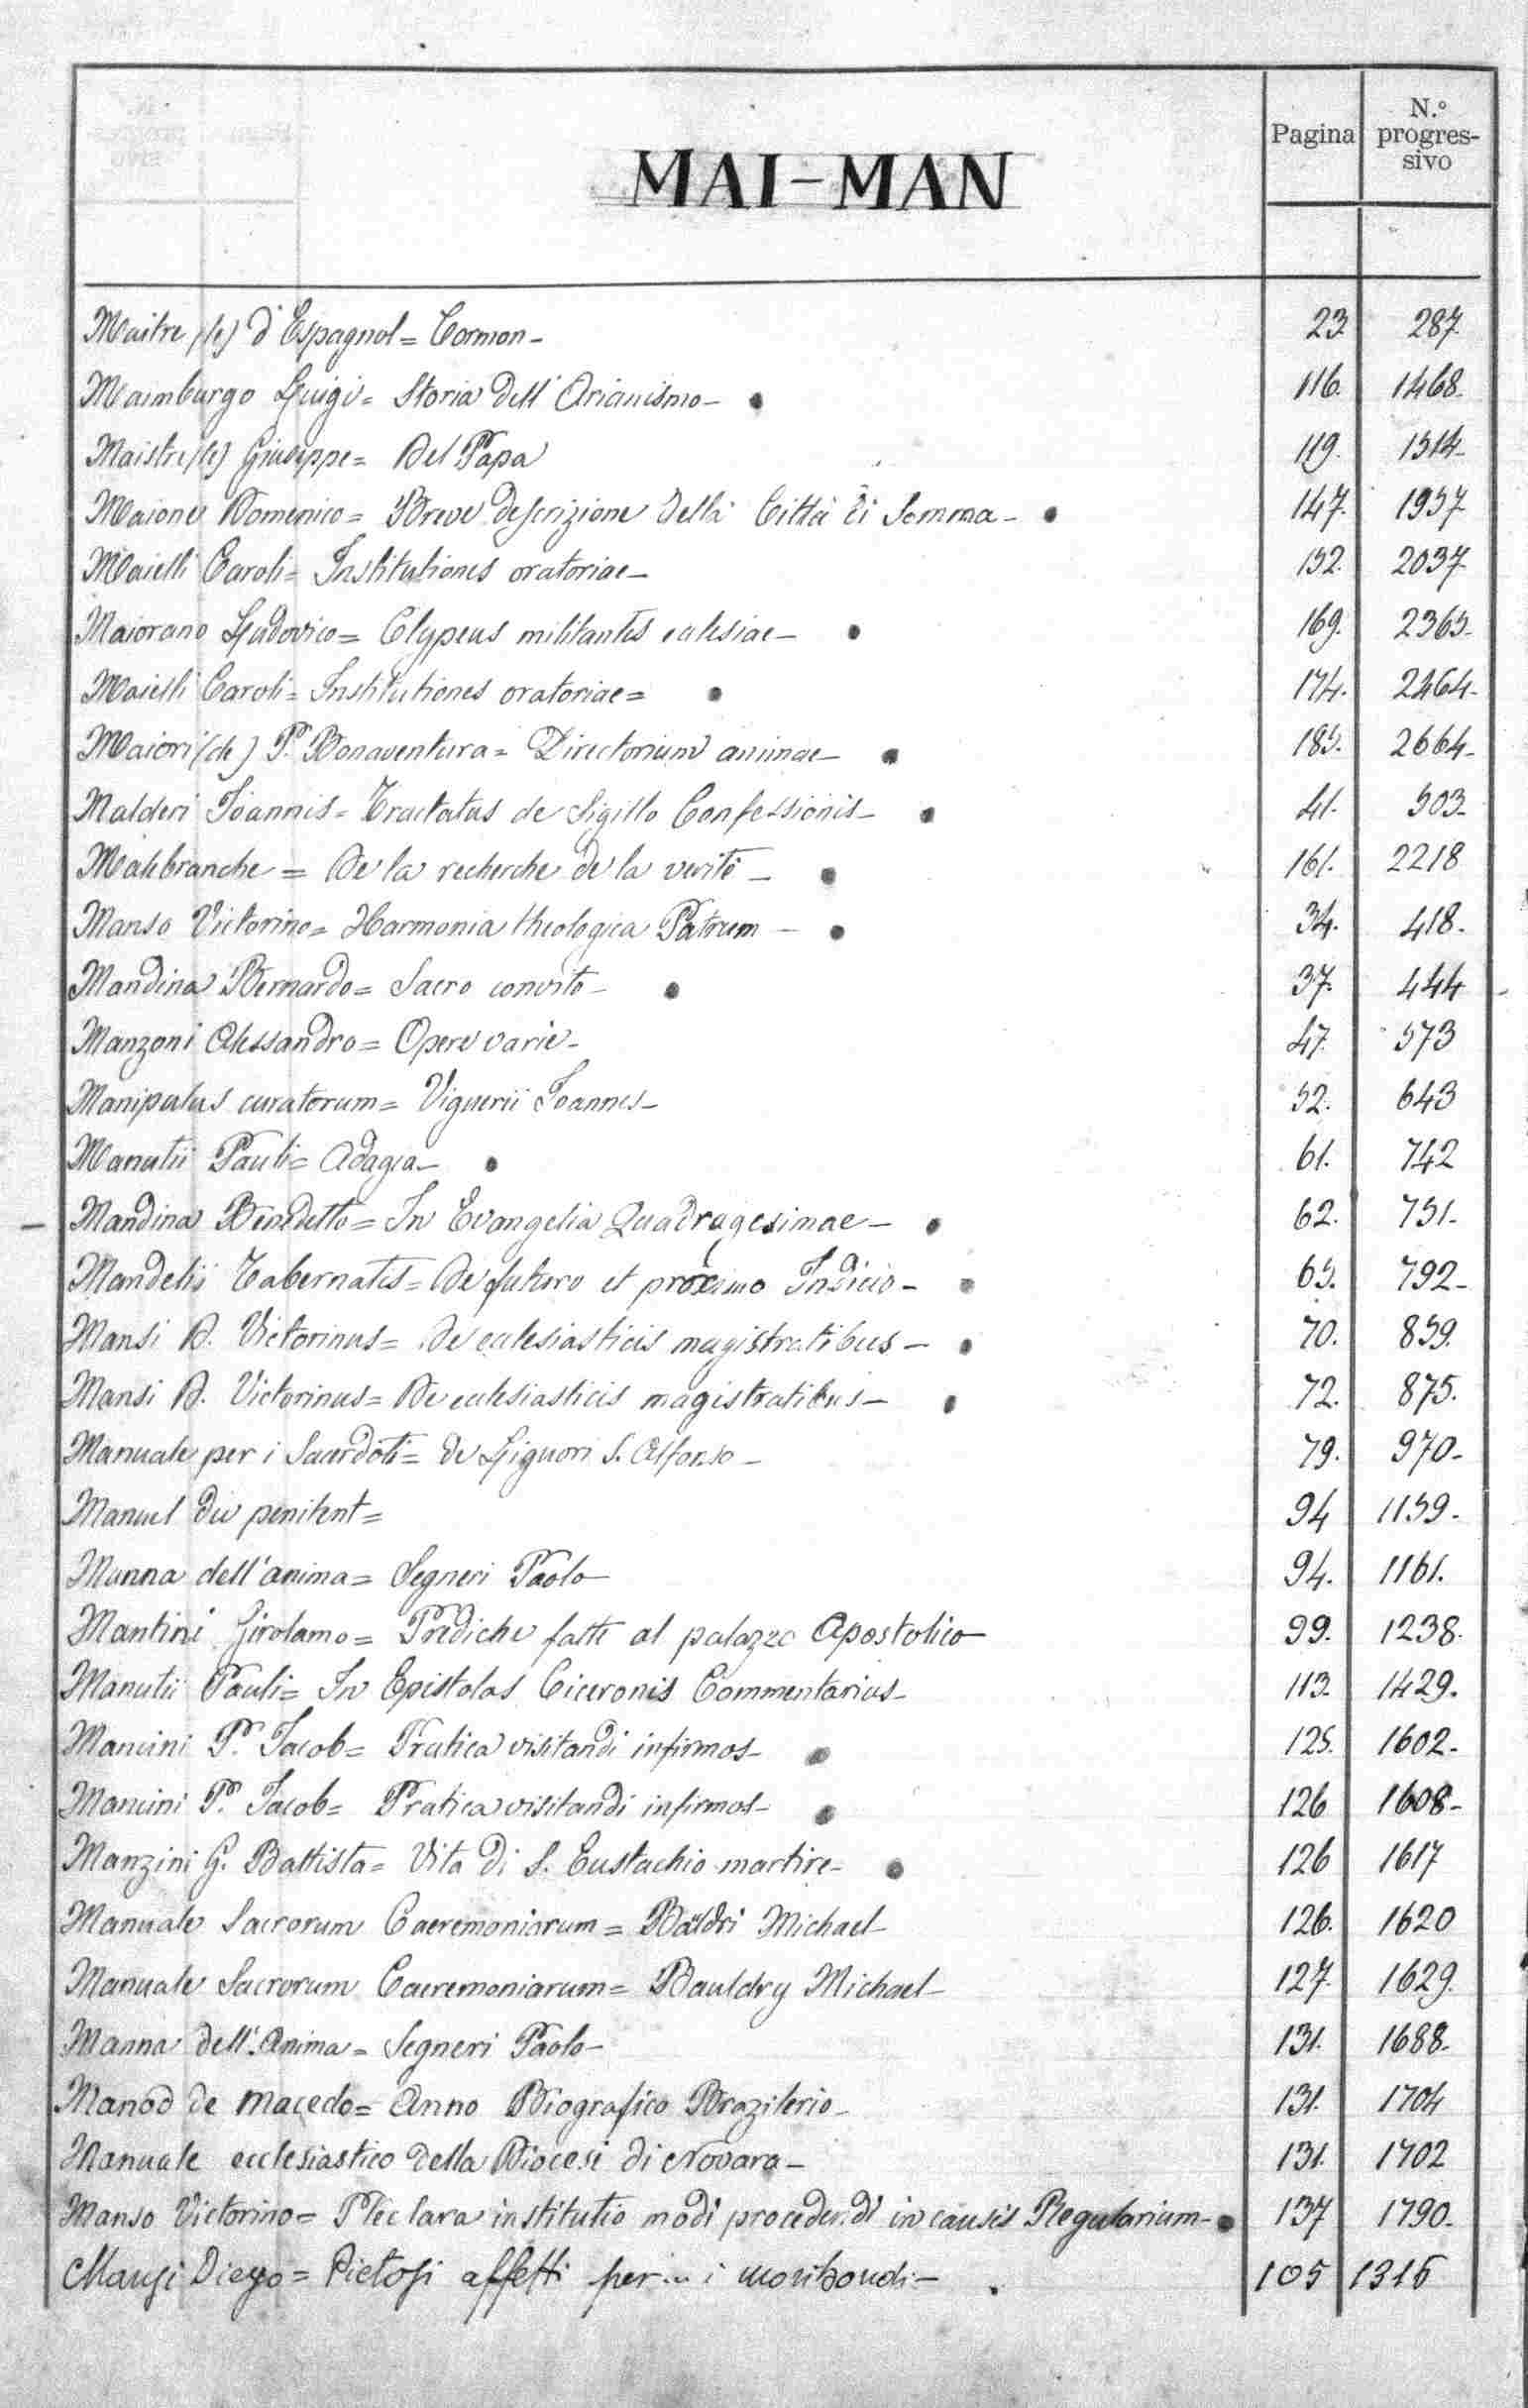 Pagina N.º progres-sivo
MAI-MAN
Maitre (le) d'Espagnol = Cormon - 23 287
Maimburgo Luigi = Storia dell'Arianismo - 116. 1468.
Maistre (le) Giuseppe = Del Papa 119. 1514-
Maione Domenico = Breve descrizione della Città di Somma - 147. 1957
Maielli Caroli = Institutiones oratoriae - 152. 2037
Maiorano Ludovico = Clypeus militantis eclesiae - 169. 2365-
Maielli Caroli = Institutiones oratoriae = 174. 2464-
Maiori (de) P. Bonaventura = Directorium animae - 185. 2664-
Malderi Ioannis = Tractatus de Sigillo Confessionis - 41. 503-
Malebranche = De la recherche de la verité - 161. 2218
Manso Victorino = Harmonia theologica Patrum - 34. 418.
Mandina Bernardo = Sacro convito - 37. 444
Manzoni Alessandro = Opere varie - 47. 573
Manipulus curatorum = Viguerii Ioannes - 52. 643
Manutii Pauli = Adagia - 61. 742
- Mandina Benedetto = In Evangelia Quadragesimae - 62. 751-
Mandelii Tabernates = De futuro et proximo Indicio - 65. 792-
Mansi D. Victorinus = De eclesiasticis magistratibus - 70. 859.
Mansi D. Victorinus = De eclesiasticis magistratibus - 72. 875.
Manuale per i Sacerdoti = de Liguori S. Alfonso - 79. 970-
Manuel du penitent = 94 1159-
Manna dell'anima = Segneri Paolo - 94. 1161.
Mantini Girolamo = Prediche fatte al palazzo Apostolico - 99. 1238.
Manutii Pauli = In Epistolas Ciceronis Commentarius - 113. 1429.
Mancini P. Iacob = Pratica visitandi infirmos - 125. 1602-
Mancini P. Iacob = Pratica visitandi infirmos - 126 1608-
Manzini G. Battista = Vita di S. Eustachio martire - 126 1617
Manuale Sacrorum Caeremoniarum = Baldri Michael - 126. 1620
Manuale Sacrorum Caeremoniarum = Bauldry Michael - 127. 1629.
Manna dell'Anima = Segneri Paolo - 131. 1688-
Manod de Macedo = Anno Biografico Brazilerio - 131. 1704
Manuale ecclesiastico della Diocesi di Novara - 131. 1702
Manso Victorino = Preclara institutio modi procedendi in causis Regularium - 137 1790-
Mansi Diego = Pietosi affetti per i moribondi - 105 1316